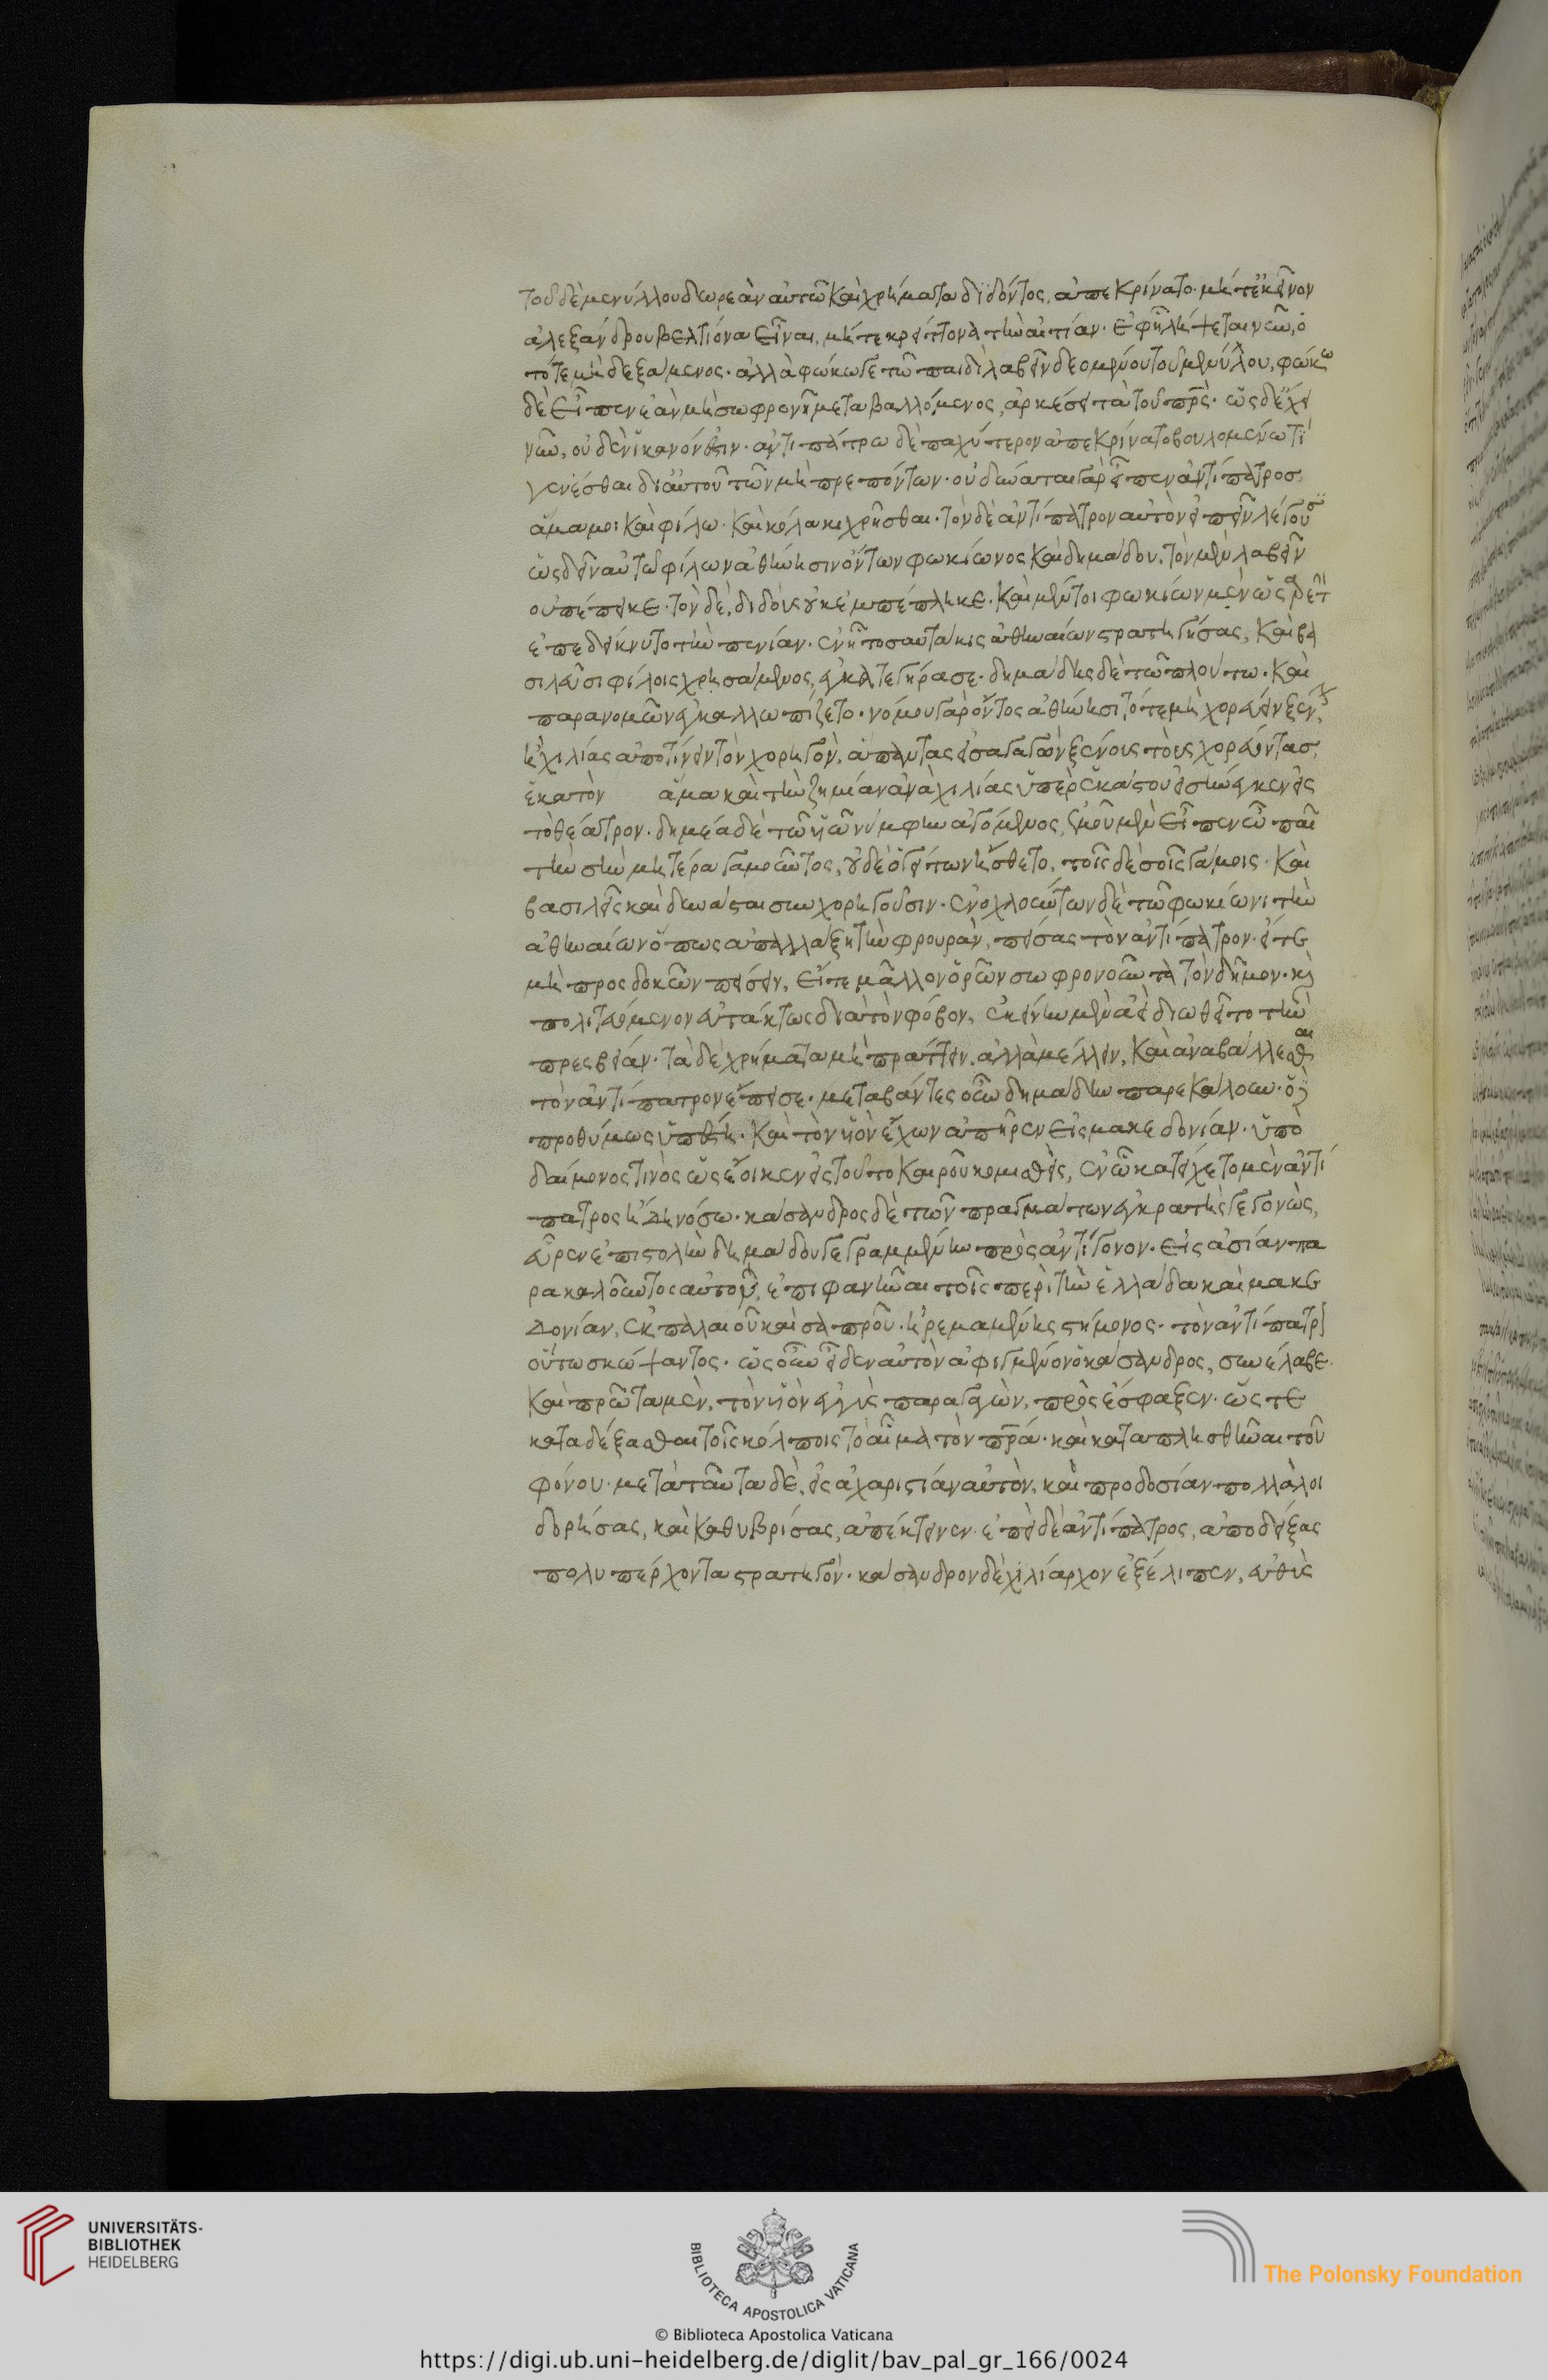 τοῦ δὲ μενύλλου δωρεὰν αὐτῶ καὶ χρήματα διδόντος, ἀπεκρίνατο· μήτ' ἐκεῖνον
ἀλεξάνδρου βελτίονα εἶναι, μήτε κρείττονα τὴν αἰτίαν· ἐφ' ῆ λήψεται νῦν, ὁ
τότε μὴ δεξάμενος· ἀλλὰ φώκω γε τῶ παιδὶ λαβεῖν δεομένου τοῦ μενύλλου, φώκω
δὲ εἶπεν ἐὰν μὲν σωφρονῆ μεταβαλλόμενος, ἀρκέσει τὰ τοῦ πρς· ὡς δ' ἔχει
νῦν, οὐδὲν ἱκανόν ἐστιν· ἀντιπάτρω δὲ παχύτερον ἀπεκρίνατο βουλομένω τὶ
γενέσθαι δι' αὐτοῦ τῶν μὴ πρεπόντων· οὐ δύναται γὰρ εἶπεν ἀντίπατρος
ἅμα μοι καὶ φίλω· καὶ κόλακι χρῆσθαι· τὸν δὲ ἀντίπατρον αὐτὸν εἰπεῖν λέγουσ
ὡς δυεῖν αὐτῶ φίλων ἀθήνησιν ὄντων φωκίωνος καὶ δημάδου, τὸν μὲν λαβεῖν
οὐ πέπεικε· τὸν δὲ, διδοὺς οὐκ ἐμπέπληκε· καὶ μέντοι φωκίων μὲν ὡς ἀρετ
ἐπεδείκνυτο τὴν πενίαν· ἐν ῆ τοσαυτάκις ἀθηναίων στρατηγήσας, καὶ βα
σιλεῦσι φίλοις χρησάμενος, ἐγκατεγήρασε· δημάδης δὲ τῶ πλούτω· καὶ
παρανομῶν ἐγκαλλωπίζετο· νόμου γὰρ ὄντος ἀθήνησι τότε μὴ χορεύειν ξέν
ἢ χιλίας ἀποτίνειν τὸν χορηγὸν, ἅπαντας εἰσαγαγὼν ξένους τοὺς χορεύοντας
ἑκατὸν ἅμα καὶ τὴν ζημίαν ἀνὰ χιλίας ὑπὲρ ἑκάστου εἰσήνεγκεν εἰς
τὸ θέατρον· δημέα δὲ τῶ υἱῶ νύμφην ἀγόμενος, ἐμοῦ μὲν εἶπεν ὦ παῖ
τὴν σὴν μητέρα γαμοῦντος, οὐδ' ὁ γείτων ἤσθετο, τοῖς δὲ σοῖς γάμοις· καὶ
βασιλεῖς καὶ δυνάσται συγχορηγοῦσιν· ἐνοχλούντων δὲ τῶ φωκίωνι τῶν
ἀθηναίων ὅπως ἀπαλλάξη τὴν φρουρὰν, πείσας τὸν ἀντίπατρον· εἴτε
μὴ προσδοκῶν πείσειν, εἴτε μᾶλλον ὁρῶν σωφρονοῦντα τὸν δῆμον· κ
πολιτευόμενον εὐτάκτως διὰ τὸν φόβον, ἐκείνην μὲν ἀεὶ διωθεῖτο τὴν
πρεσβείαν· τὰ δὲ χρήματα μὴ πράττειν, ἀλλὰ μέλλειν, καὶ ἀναβάλλεσθαι
τὸν ἀντίπατρον ἔπεισε· μεταβάντες οὖν δημάδην παρεκάλουν· ὁ
προθύμως ὑπέστη· καὶ τὸν υἱὸν ἔχων ἀπῆρεν εἰς μακεδονίαν· ὑπὸ
δαίμονος τινὸς ὡς ἔοικεν εἰς τοῦτο καιροῦ κομισθεὶς, ἐν ῶ κατείχετο μὲν ἀντί
πατρος ἤδη νόσω· κάσανδρος δὲ τῶν πραγμάτων ἐγκρατὴς γεγονὼς,
εὗρεν ἐπιστολὴν δημάδου γεγραμμένην πρὸς ἀντίγονον· εἰς ἀσίαν πα
ρακαλοῦντος αὐτοῦ, ἐπιφανῆναι τοῖς περὶ τὴν ἑλλάδα καὶ μακε
δονίαν, ἐκ παλαιοῦ καὶ σαπροῦ· ἠρεμαμένης στήμονος· τὸν ἀντίπατρ
οὕτω σκώψαντος· ὡς οὖν εἶδεν αὐτὸν ἀφιγμένον ὁ κάσανδρος, συνέλαβε·
καὶ πρῶτα μὲν, τὸν υἱὸν ἐγγὺς παραγαγὼν, προσέσφαξεν· ὥστε
καταδέξασθαι τοῖς κόλποις τὸ αἷμα τὸν πρα· καὶ καταπλησθῆναι τοῦ
φόνου· μετὰ ταῦτα δὲ, εἰς ἀχαριστίαν αὐτὸν, καὶ προδοσίαν πολλὰ λοι
δορήσας, καὶ καθυβρίσας, ἀπέκτεινεν· ἐπεὶ δὲ ἀντίπατρος, ἀποδείξας
πολυπέρχοντα στρατηγὸν· κάσανδρον δὲ χιλίαρχον ἐξέλιπεν, εὐθὺς
UNIVERSITÄTS-
BIBLIOTHEK
HEIDELBERG
BIBLIOTECA APOSTOLICA VATICANA
The Polonsky Foundation
© Biblioteca Apostolica Vaticana
https://digi.ub.uni-heidelberg.de/diglit/bav_pal_gr_166/0024